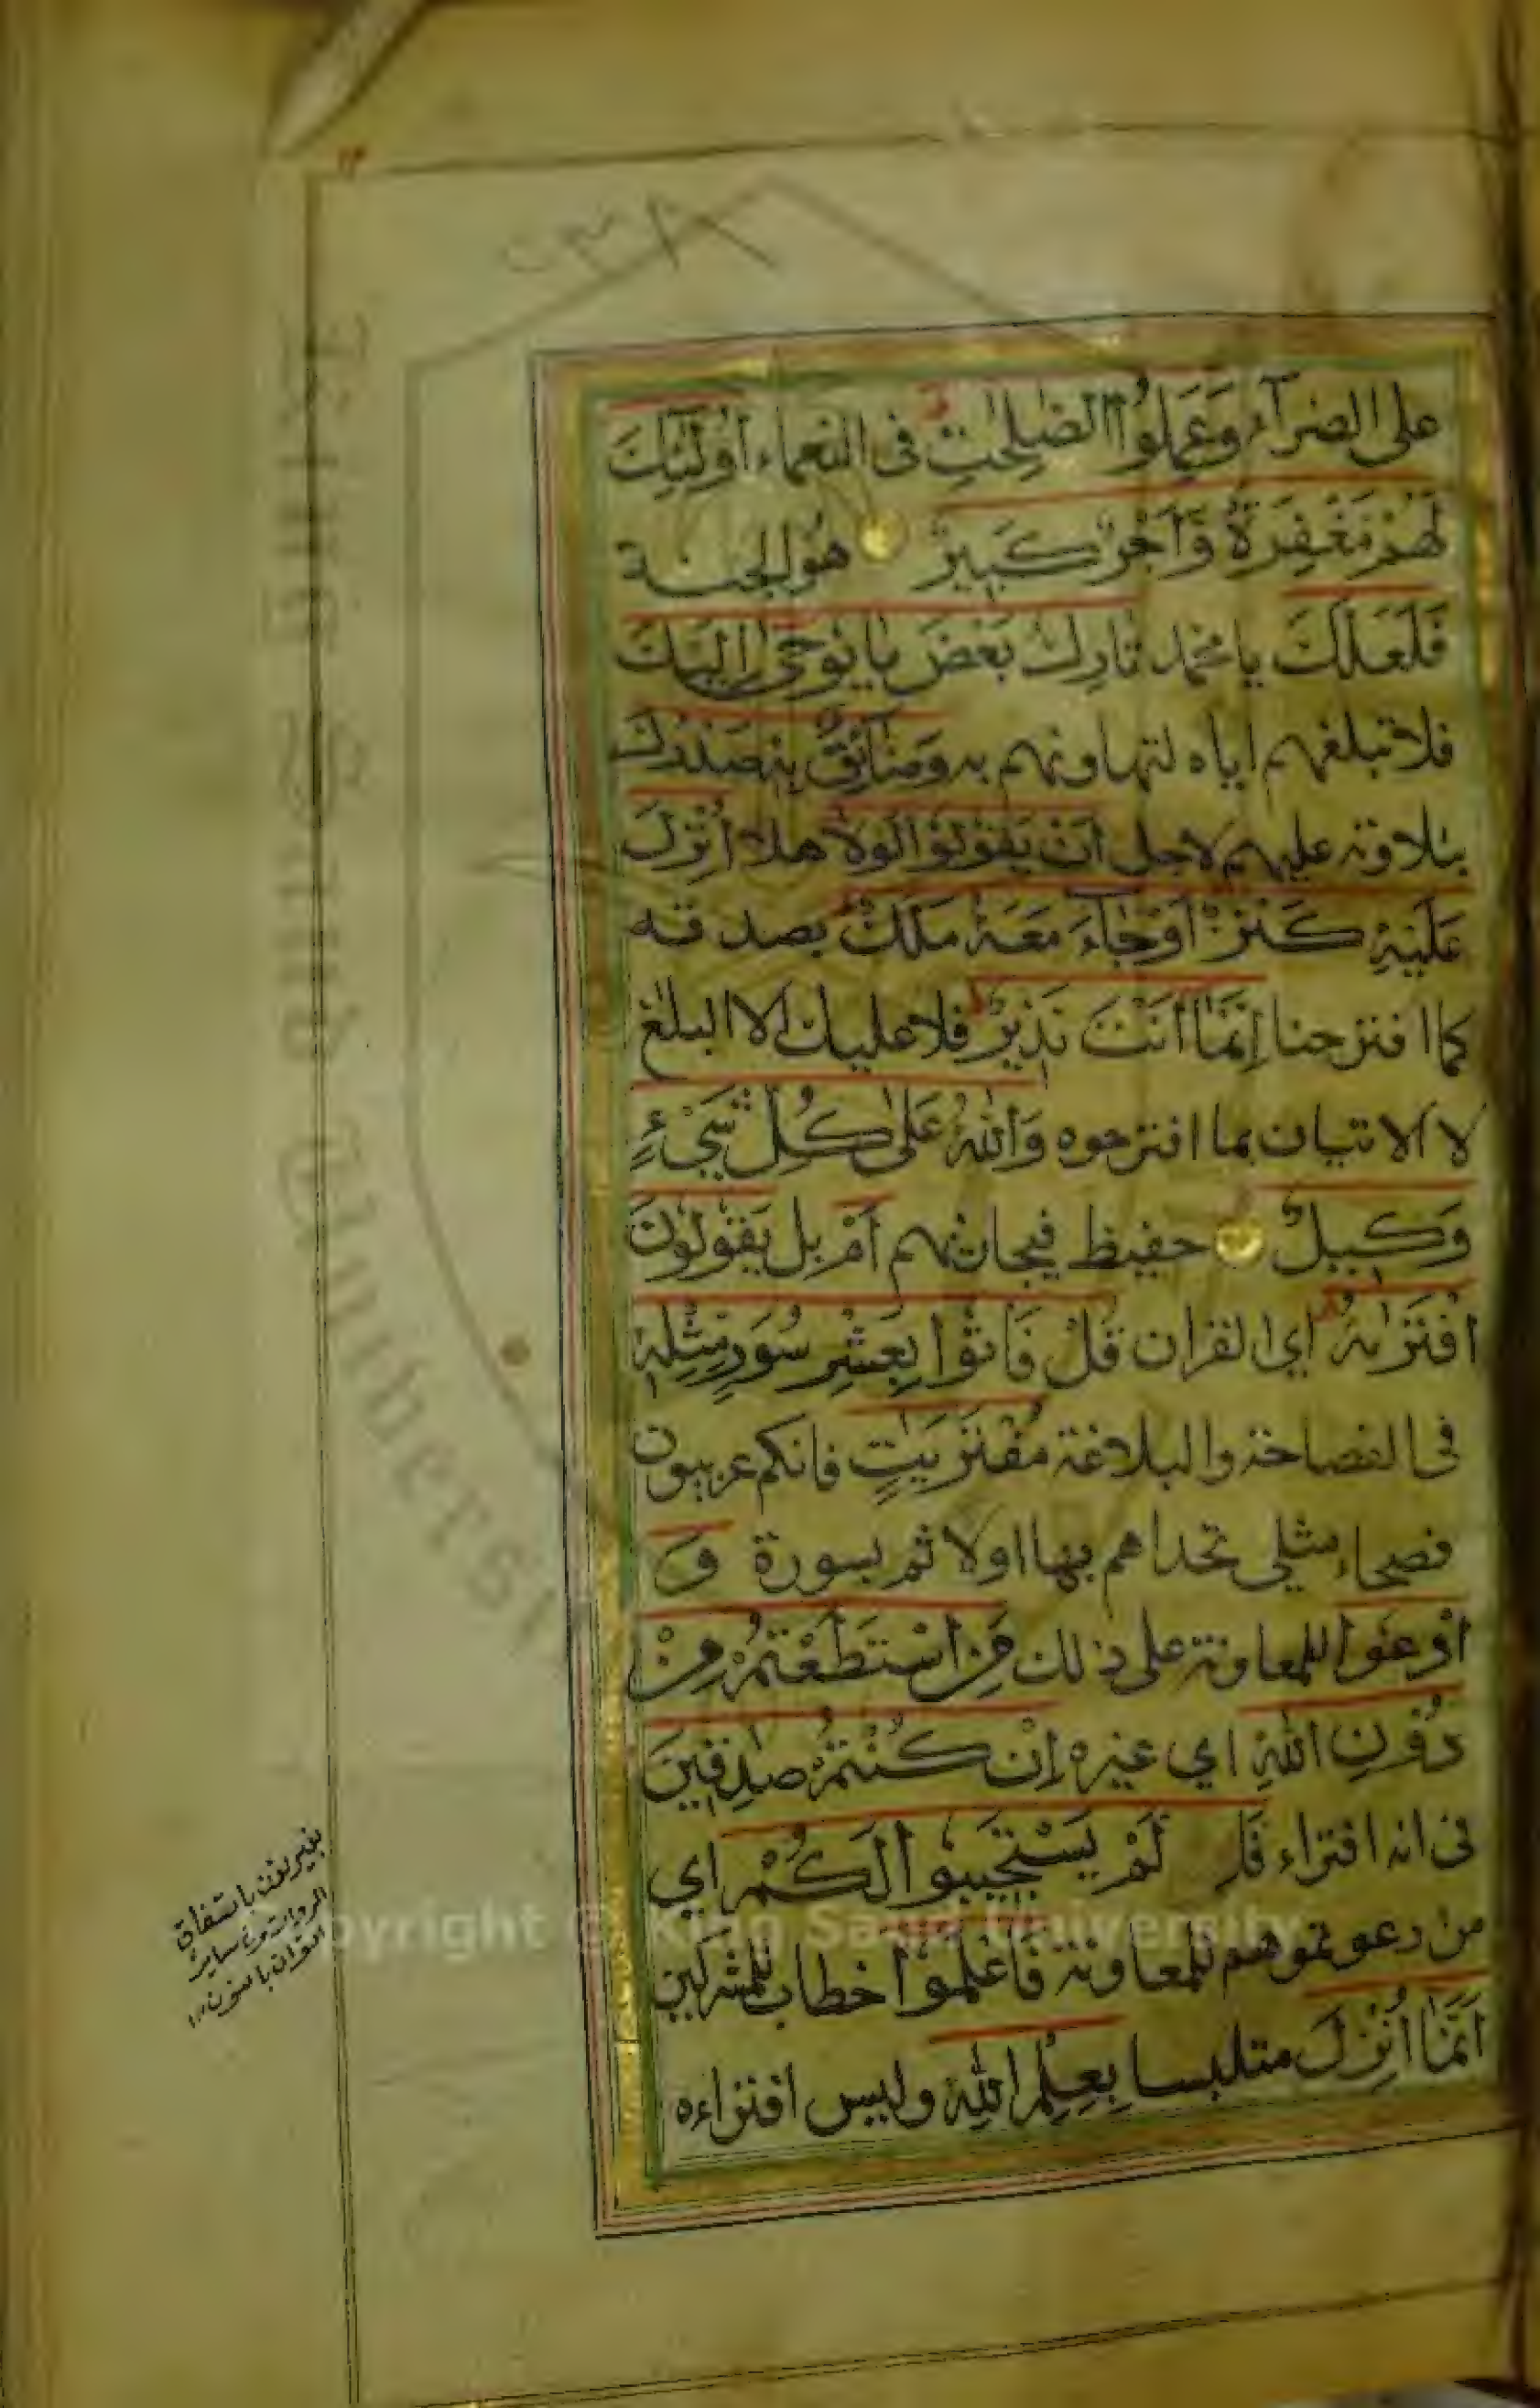 على الضرآء وَعَمِلُوا الصّٰلِحٰتِ فى النعماء اُولٰٓئِكَ
لَهُمْ مَغْفِرَةٌ وَّاَجْرٌ كَبِيْرٌ هو الجنة
فَلَعَلَّكَ يا محمد تَارِكٌ بَعْضَ مَا يُوْحٰى اِلَيْكَ
فلا تبلغهم اياه لتهاونهم به وَضَآئِقٌ بِهٖ صَدْرُكَ
بتلاوته عليهم لاجل اَنْ يَقُوْلُوْا لَوْلَا هلا اُنْزِلَ
عَلَيْهِ كَنْزٌ اَوْ جَآءَ مَعَهٗ مَلَكٌ يصدقه
كما اقترحنا اِنَّمَا اَنْتَ نَذِيْرٌ فلا عليك الا البلغ
لا الاتيان بما اقترحوه وَاللّٰهُ عَلٰى كُلِّ شَيْءٍ
وَكِيْلٌ حفيظ فيجازيهم اَمْ بل يَقُوْلُوْنَ
افْتَرٰىهُ اي القران قُلْ فَأْتُوْا بِعَشْرِ سُوَرٍ مِّثْلِهٖ
فى الفصاحة والبلاغة مُفْتَرَيٰتٍ فانكم عربيون
فصحاء مثلي تحداهم بها اولا ثم بسورة وَ
ادْعُوْا للمعاونة على ذلك مَنِ اسْتَطَعْتُمْ مِّنْ
دُوْنِ اللّٰهِ اي غيره اِنْ كُنْتُمْ صٰدِقِيْنَ
فى انه افتراء فَاِ لَّمْ يَسْتَجِيْبُوْا لَكُمْ اي
من دعوتموهم للمعاونة فَاعْلَمُوْا خطاب للمشركين
اَنَّمَا اُنْزِلَ متلبسا بِعِلْمِ اللّٰهِ وليس افتراءه
بغير نون باتفاق
القران بالنون
Copyright © King Saud University
King Saud University